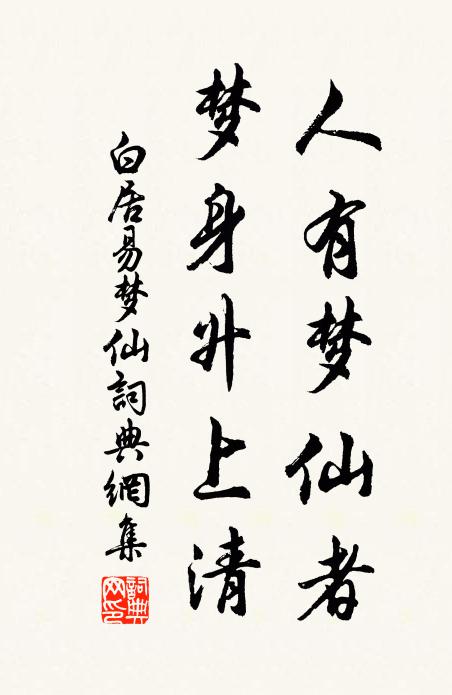 人有梦仙者
梦身升上清
白居易梦仙詞典網集
詞典网印